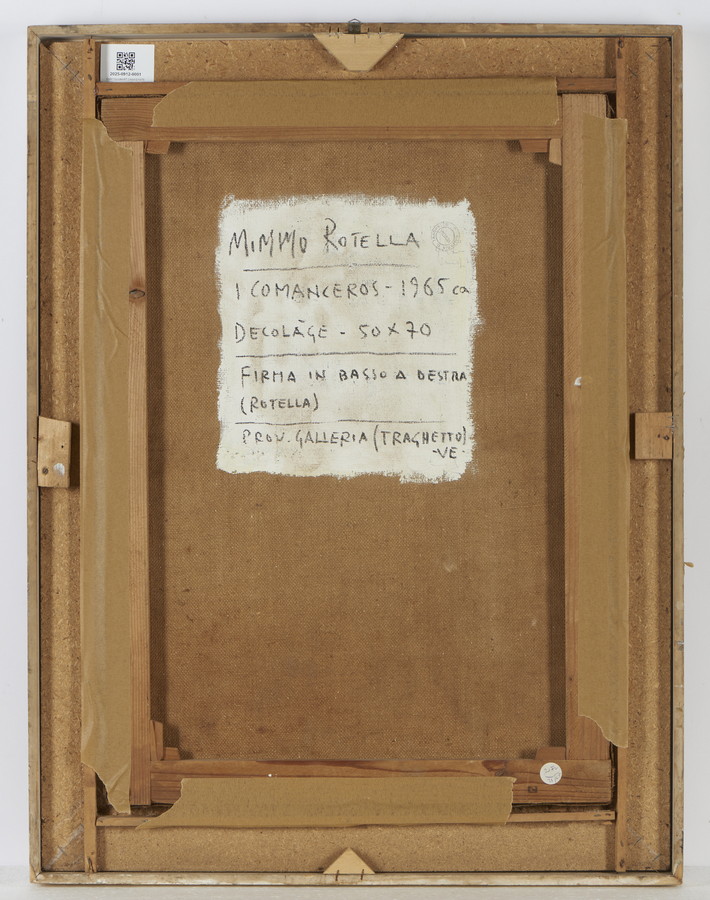 2025-0912-0001
MIMMO ROTELLA
I COMANCEROS - 1965 ca
DECOLÂGE - 50X70
FIRMA IN BASSO A DESTRA
(ROTELLA)
PROV. GALLERIA (TRAGHETTO)
-VE-